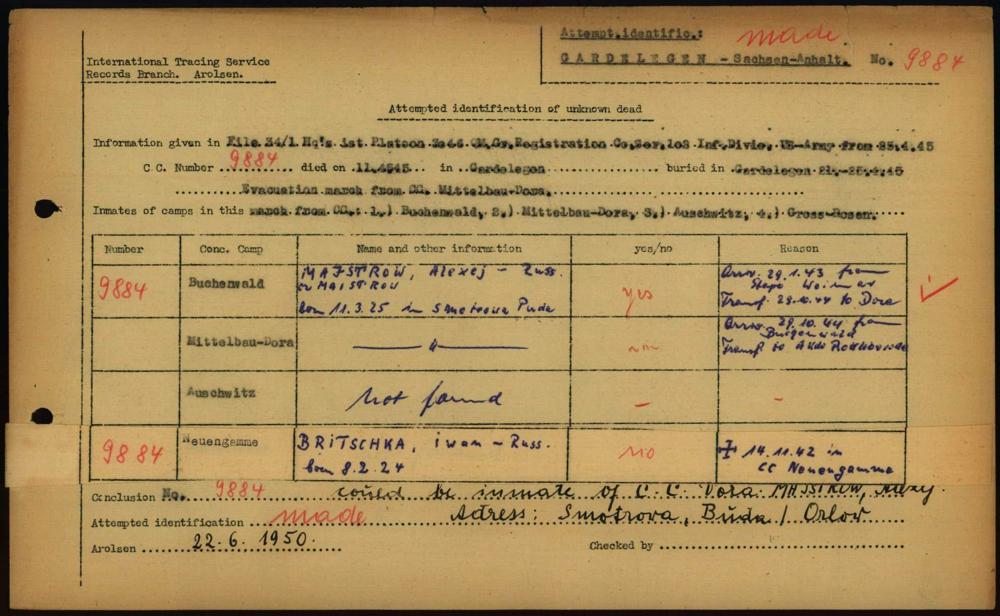 International Tracing Service
Records Branch. Arolsen.
Attempt.identific.: made
GARDELEGEN - Sachsen-Anhalt. No. 9884
Attempted identification of unknown dead
Information given in File 34/1 Hq's 1st Platoon 3046 QM.Gr.Registration Co.Ser.102 Inf.Divis. US-Army from 25.4.45
C C. Number 9884 died on in Gardelegen buried in Gardelegen 21.-25.4.45
Evacuation march from CC. Mittelbau-Dora.
Inmates of camps in this march from CC.: 1.) Buchenwald, 2.) Mittelbau-Dora, 3.) Auschwitz, 4.) Gross-Rosen.
Number Conc. Camp Name and other information yes/no Reason
9884 Buchenwald MAJSTROW, Alexej - Russ. yes Arriv. 29.1.43 from
or MAISTROW Stapo Weimar
born 11.3.25 in Smotrowa Puda Transf. 28.10.44 to Dora
Mittelbau-Dora — " — Arriv. 29.10.44 from
Transf. to
Auschwitz not found - -
9884 Neuengamme BRITSCHKA, iwan - Russ. no 14.11.42 in
born 8.2.24 CC Neuengamme
Conclusion No. 9884 could be inmate of C.C. Dora MAJSTROW, Alexy.
Attempted identification made Adress: Smotrova, Buda / Orlov
Arolsen 22.6.1950. Checked by